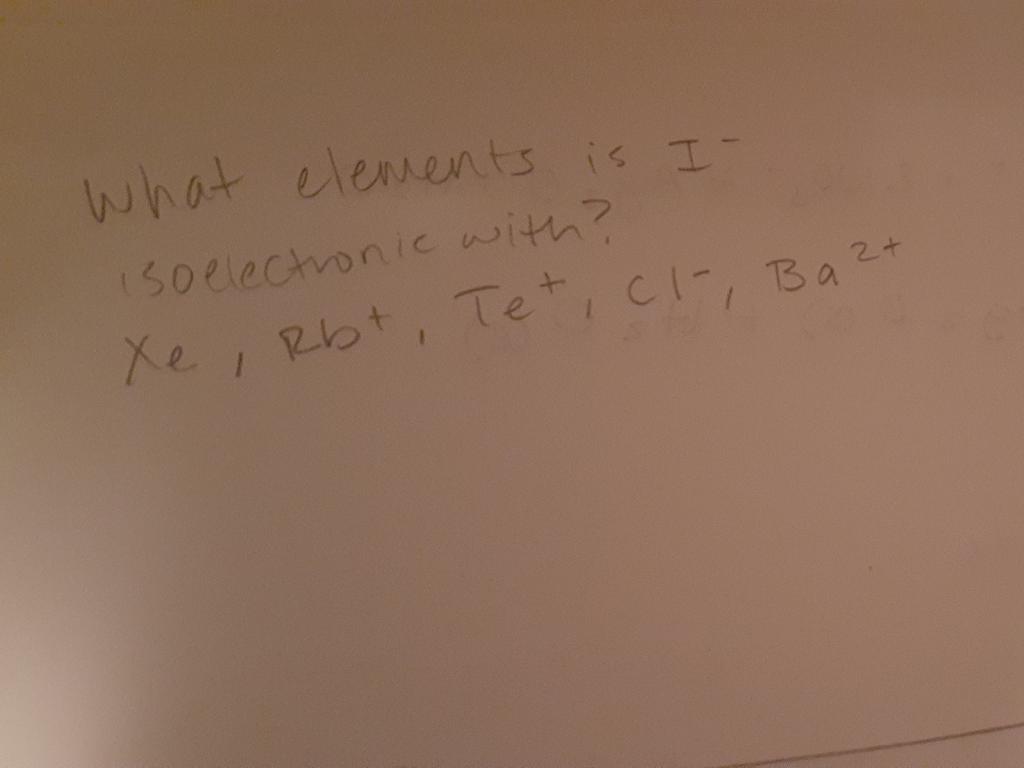 What elements is I⁻
isoelectronic with?
Xe, Rb⁺, Te⁺, Cl⁻, Ba²⁺